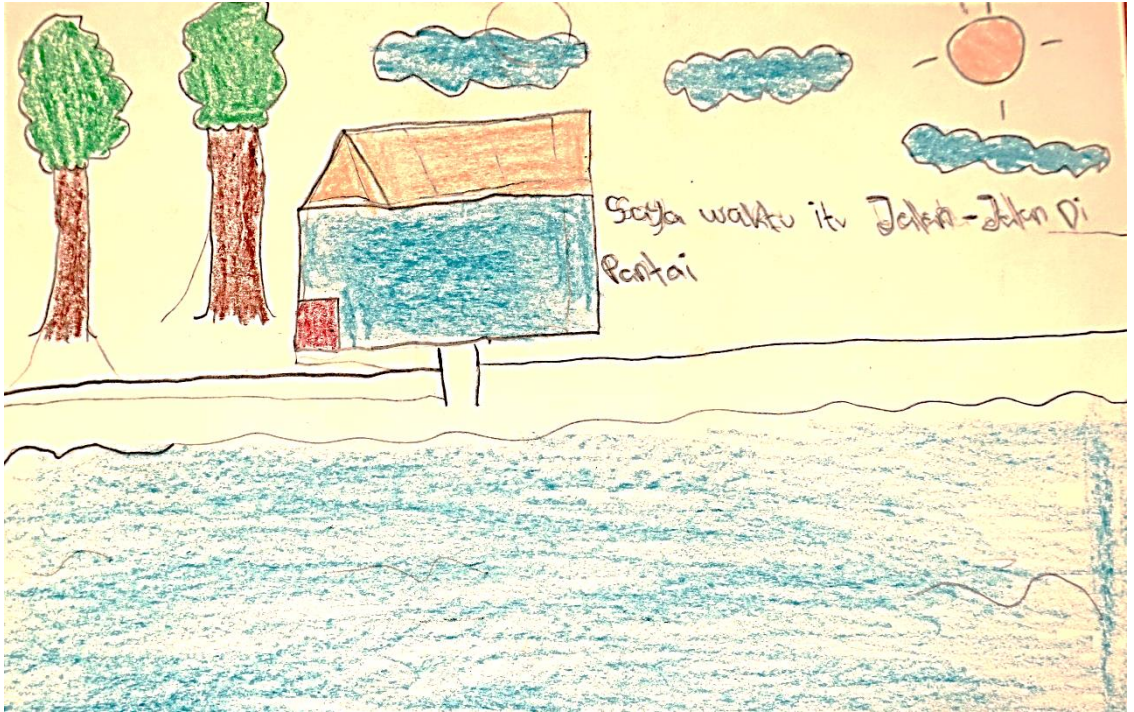 Saya waktu itu Jalan-Jalan Di
Pantai